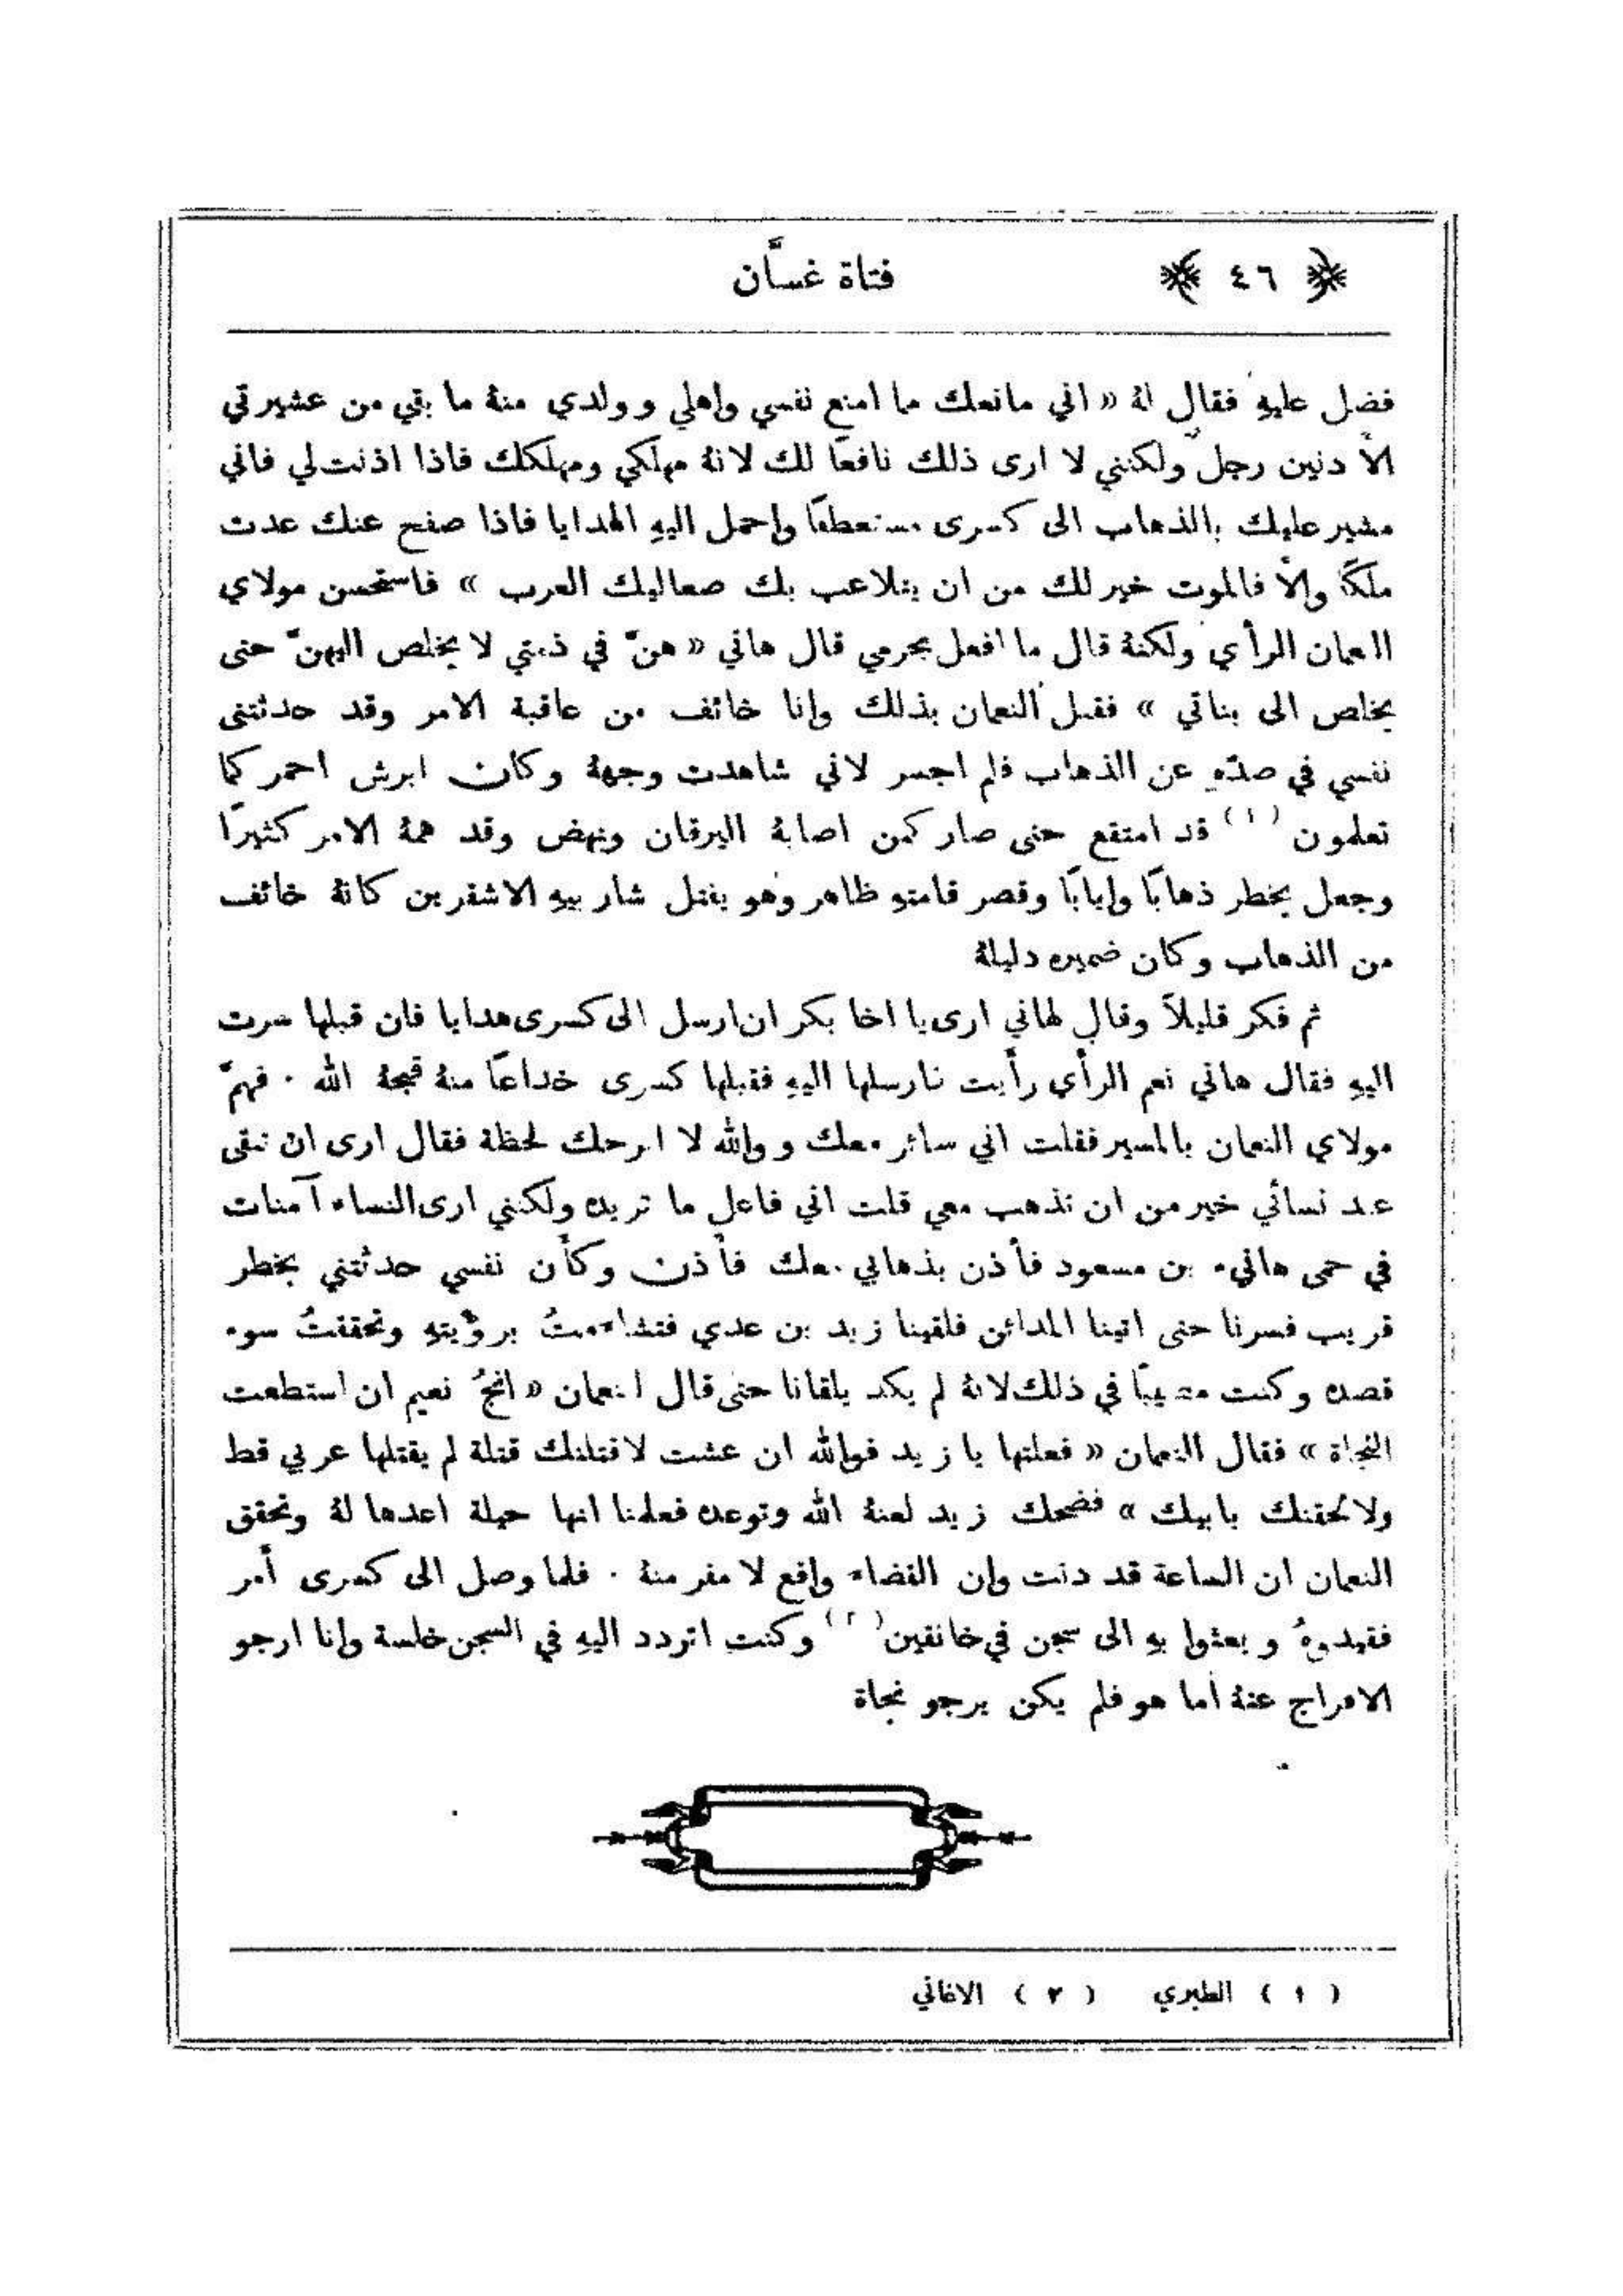 ﴿ ٤٦ ﴾ فتاة غسَّان
فضل عليهِ فقال لهُ « اني مانعك مما امنع نفسي واهلي وولدي منهُ ما بقي من عشيرتي
الاَّ دنين رجل ولكنني لا ارى ذلك نافعًا لك لانهُ مهلكي ومهلكك فاذا اذنت لي فاني
مشير عليك بالذهاب الى كسرى مستعطفًا واحمل اليهِ الهدايا فاذا صفح عنك عدت
ملكًا والاَّ فالموت خير لك من ان يتلاعب بك صعاليك العرب » فاستحسن مولاي
النعمان الرأي ولكنهُ قال ما افعل بحرمي قال هاني « هنَّ في ذمتي لا يخلص اليهنَّ حتى
يخلص الى بناتي » فقبل النعمان بذلك وانا خائف من عاقبة الامر وقد حدثتني
نفسي في صدّهِ عن الذهاب فلم اجسر لاني شاهدت وجههُ وكان ابرش احمر كما
تعلمون (١) قد امتقع حتى صار كمن اصابهُ اليرقان ونهض وقد همهُ الامر كثيرًا
وجعل يخطر ذهابًا وايابًا وقصر قامتهِ ظاهر وهو يفتل شاربيهِ الاشقرين كانهُ خائف
من الذهاب وكان ضميره دليلهُ
ثم فكر قليلاً وقال لهاني ارى يا اخا بكر ان ارسل الى كسرى هدايا فان قبلها سرت
اليهِ فقال هاني نعم الرأي رأيت فارسلها اليهِ فقبلها كسرى خداعًا منهُ قبحهُ الله . فهمَّ
مولاي النعمان بالمسير فقلت اني سائر معك ووالله لا ابرحك لحظة فقال ارى ان تبقى
عند نسائي خير من ان تذهب معي قلت اني فاعل ما تريده ولكنني ارى النساء آمنات
في حمى هانيء بن مسعود فأذن بذهابي معك فأذن وكأن نفسي حدثتني بخطر
قريب فسرنا حتى اتينا المدائن فلقينا زيد بن عدي فتشاءمتُ برؤيتهِ وتحققتُ سوء
قصده وكنت مصيبًا في ذلك لانهُ لم يكد يلقانا حتى قال لنعمان « انجُ نعيم ان استطعت
النجاة » فقال النعمان « فعلتها يا زيد فوالله ان عشت لاقتلنك قتلة لم يقتلها عربي قط
ولالحقنك بابيك » فضحك زيد لعنهُ الله وتوعده فعلمنا انها حيلة اعدها لهُ وتحقق
النعمان ان الساعة قد دنت وان القضاء واقع لا مفر منهُ . فلما وصل الى كسرى أمر
فقيدوهُ وبعثوا بهِ الى سجن في خانقين (٢) وكنت اتردد اليهِ في السجن خلسة وانا ارجو
الافراج عنهُ اما هو فلم يكن يرجو نجاة
( ١ ) الطبري ( ٢ ) الاغاني